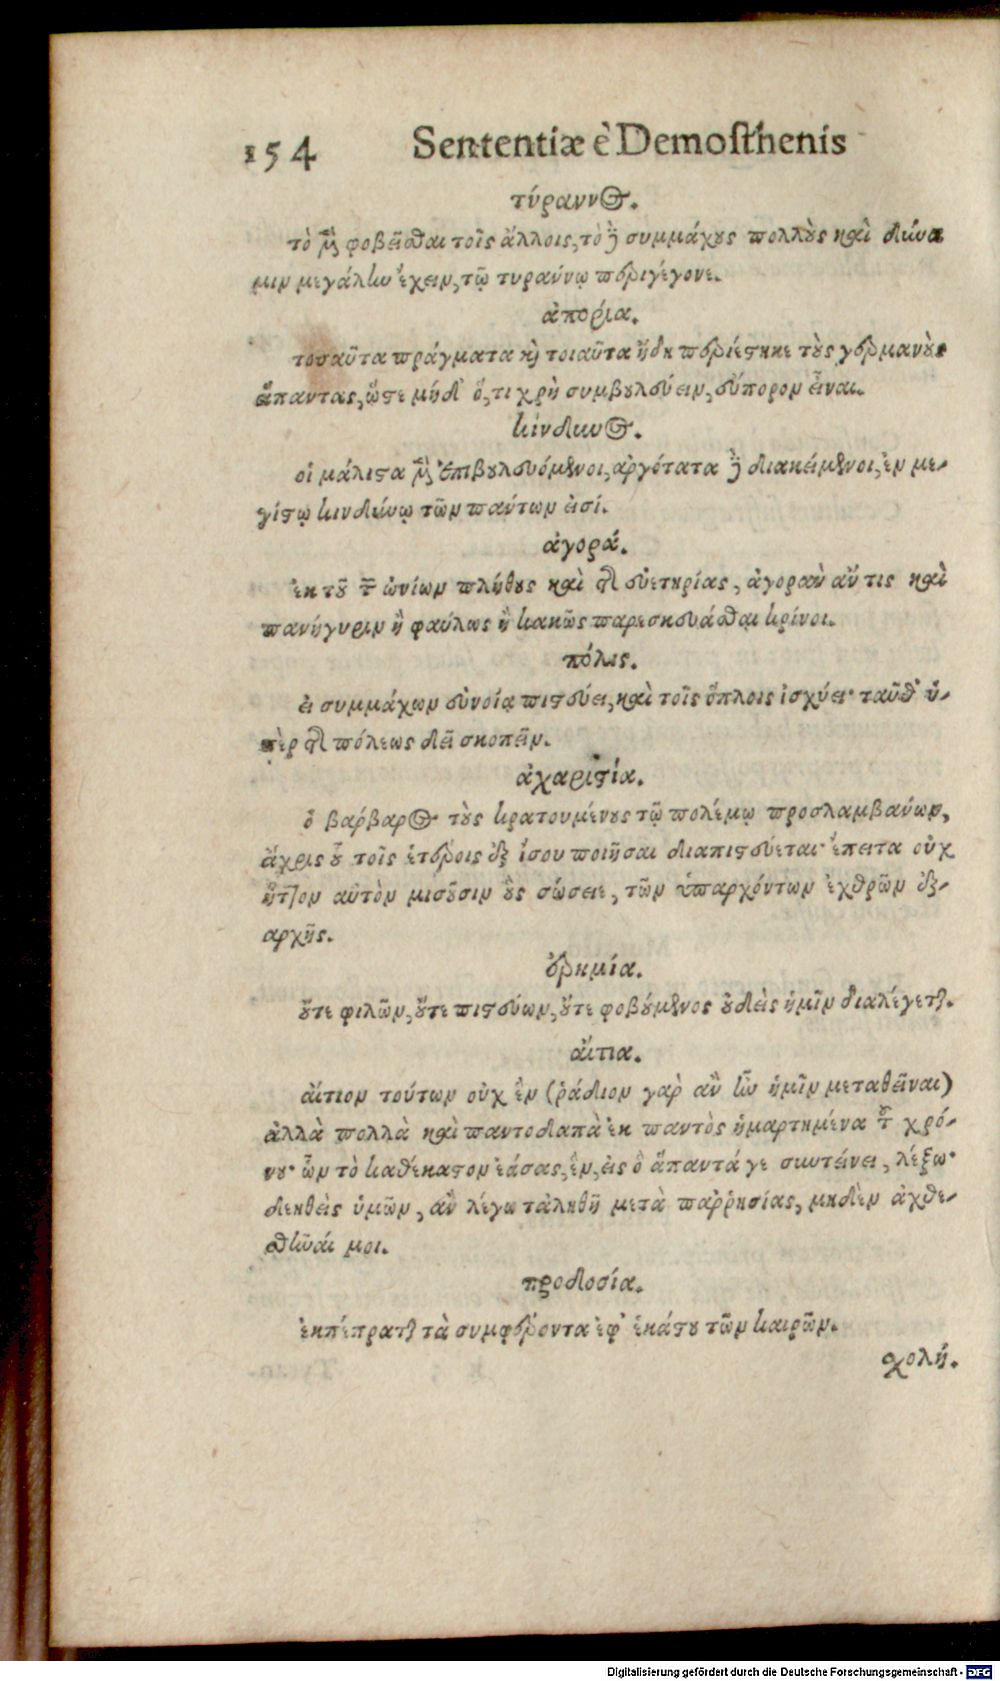 154 Sententiæ è Demosthenis
τύραννος.
τὸ μὲν φοβεῖσθαι τοῖς ἄλλοις, τὸ δὲ συμμάχους πολλοὺς καὶ δύνα
μιν μεγάλην ἔχειν, τῷ τυράννῳ περιγέγονε.
ἀπορία.
τοσαῦτα πράγματα καὶ τοιαῦτα ἤδη περιέστηκε τοὺς γερμανοὺς
ἅπαντας, ὥστε μήδ' ὅ, τι χρὴ συμβουλεύειν, εὔπορον εἶναι.
κίνδυνος.
οἱ μάλιστα μὲν ἐπιβουλευόμενοι, ἀργότατα δὲ διακείμενοι, ἐν με-
γίστῳ κινδύνῳ τῶν πάντων εἰσί.
ἀγορά.
ἐκ τοῦ τῶν ὠνίων πλήθους καὶ τῆς εὐετηρίας, ἀγορὰν ἄν τις καὶ
πανήγυριν ἢ φαύλως ἢ κακῶς παρεσκευάσθαι κρίνοι.
πόλις.
εἰ συμμάχων εὐνοίᾳ πιστεύει, καὶ τοῖς ὅπλοις ἰσχύει· ταῦθ' ὑ-
πὲρ τῆς πόλεως δεῖ σκοπεῖν.
ἀχαριστία.
ὁ βάρβαρος τοὺς κρατουμένους τῷ πολέμῳ προσλαμβάνων,
ἄχρις οὗ τοῖς ἑτέροις ἐξ ἴσου ποιῆσαι διαπιστεύεται· ἔπειτα οὐχ
ἧττον αὐτὸν μισοῦσιν οὓς σώσειε, τῶν ὑπαρχόντων ἐχθρῶν ἐξ-
αρχῆς.
ἐρημία.
οὔτε φιλῶν, οὔτε πιστεύων, οὔτε φοβούμενος οὐδεὶς ἡμῖν διαλέγεται.
αἴτια.
αἴτιον τούτων οὐχ ἓν (ῥάδιον γὰρ ἂν ἦν ἡμῖν μεταθεῖναι)
ἀλλὰ πολλὰ καὶ παντοδαπὰ ἐκ παντὸς ἡμαρτημένα τοῦ χρό-
νου· ὧν τὸ καθέκαστον ἐάσας, ἓν, εἰς ὃ ἅπαντά γε συντείνει, λέξω·
δεηθεὶς ὑμῶν, ἂν λέγω τἀληθῆ μετὰ παῤῥησίας, μηδὲν ἀχθε-
σθῆναί μοι.
προδοσία.
ἐκπέπραται τὰ συμφέροντα ἐφ' ἑκάστου τῶν καιρῶν.
σχολή.
Digitalisierung gefördert durch die Deutsche Forschungsgemeinschaft - DFG